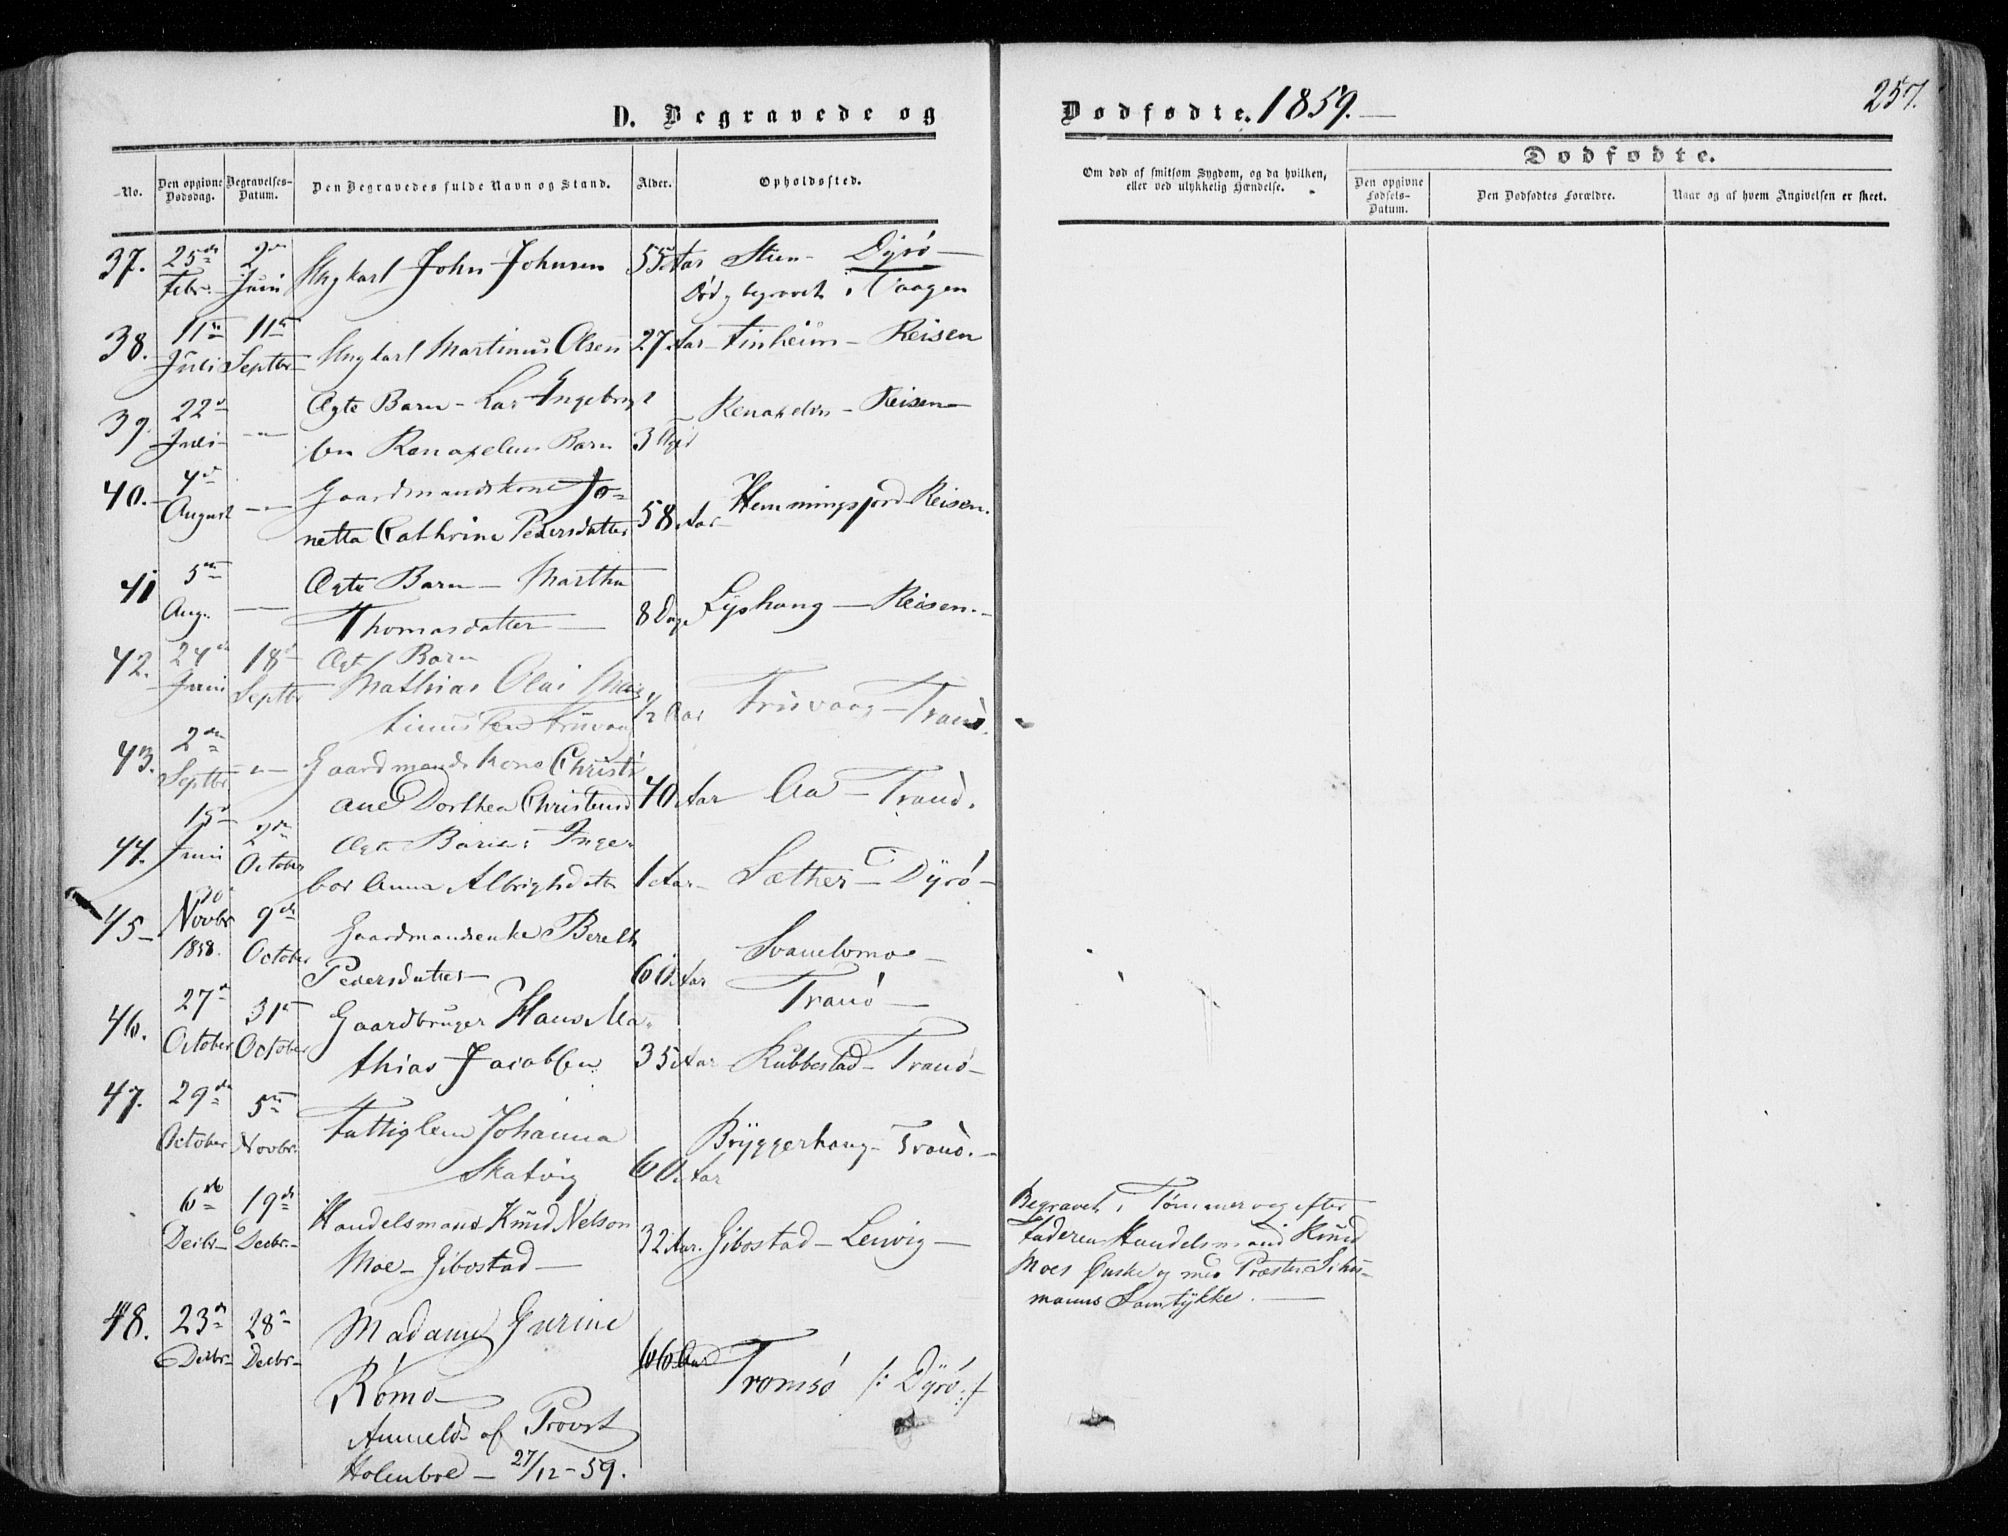 D. Begravede og
Dødfødte. 1859.
257.
No.
Den opgivne Dødsdag.
Begravelses-Datum.
Den Begravedes fulde Navn og Stand.
Alder.
Opholdssted.
Om død af smitsom Sygdom, og da hvilken, eller ved ulykkelig Hændelse.
Dødfødte.
Den opgivne Fødsels-Datum.
Den Dødfødtes Forældre.
Naar og af hvem Angivelsen er skeet.
37. 25de 2den Ungkarl John Johnsen 55 Aar Dyrø
Febr. Juni Død og begravet i Vaagen
38. 11te 11te Ungkarl Martinus Olsen 27 Aar Finheim - Reisen
Juli Septbr
39. 22de Ægte Barn - Reisen
Juli Barn 3
40. 4de Gaardmandskone Jo-
August netta Cathrine Pedersdatter 58 Aar Hemmingsfjord Reisen.
41 5te Ægte Barn - Martha
Aug. Thomasdatter 8 Dage Lyshaug - Reisen.
42. 24de 18de Ægte Barn
Juni Septbr Mathias Olai Mar-
tinus 1/2 Aar Trusvaag - Tranø.
43. 2den Gaardmands Kone Christi-
Septbr ane Dorthea 40 Aar Aa - Tranø.
44. 15de 2den Ægte Barn: Inger
Juni October Anna Albrigtsdatter 1 Aar Sæther - Dyrø
45 30 9de Gaardmandsenke Bereth
Novbr 1858. October Pedersdatter 60 Aar Svanelvmo
Tranø
46. 27de 31te Gaardbruger Hans Ma-
October October thias Jacobsen 35 Aar Kubbestad - Tranø
47. 29de 5te Fattiglem Johanna
October Novbr. Skatvig 60 Aar Bryggerhaug - Tranø.
6te 19de Handelsmand Knud Nelson
Decbr Decbr. Moe - Gibostad 32 Aar. Gibostad - Lenvig
Begravet i Tømmervig efter
Faderen Handelsmand Knud
Moes Ønske og med Præsten
Samtykke.
48. 23de 28de Madame Gurine
Decbr Decbr Rømo 66 Aar Tromsø /: Dyrø :/
Anmeldt af Provst
Holmboe - 27/12-59.